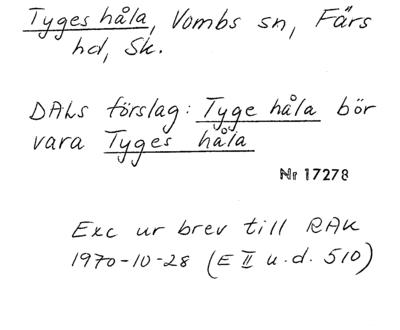 Tyges håla, Vombs sn, Färs
hd, Sk.
DALs förslag: Tyge håla bör
vara Tyges håla
Nr 17278
Exc ur brev till RAK
1970-10-28 (E II u.d. 510)